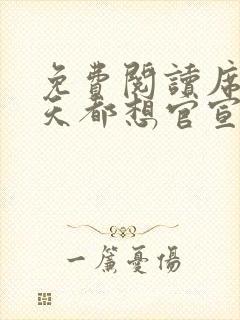 免費閱讀席
天都想官宣
一簾憂傷